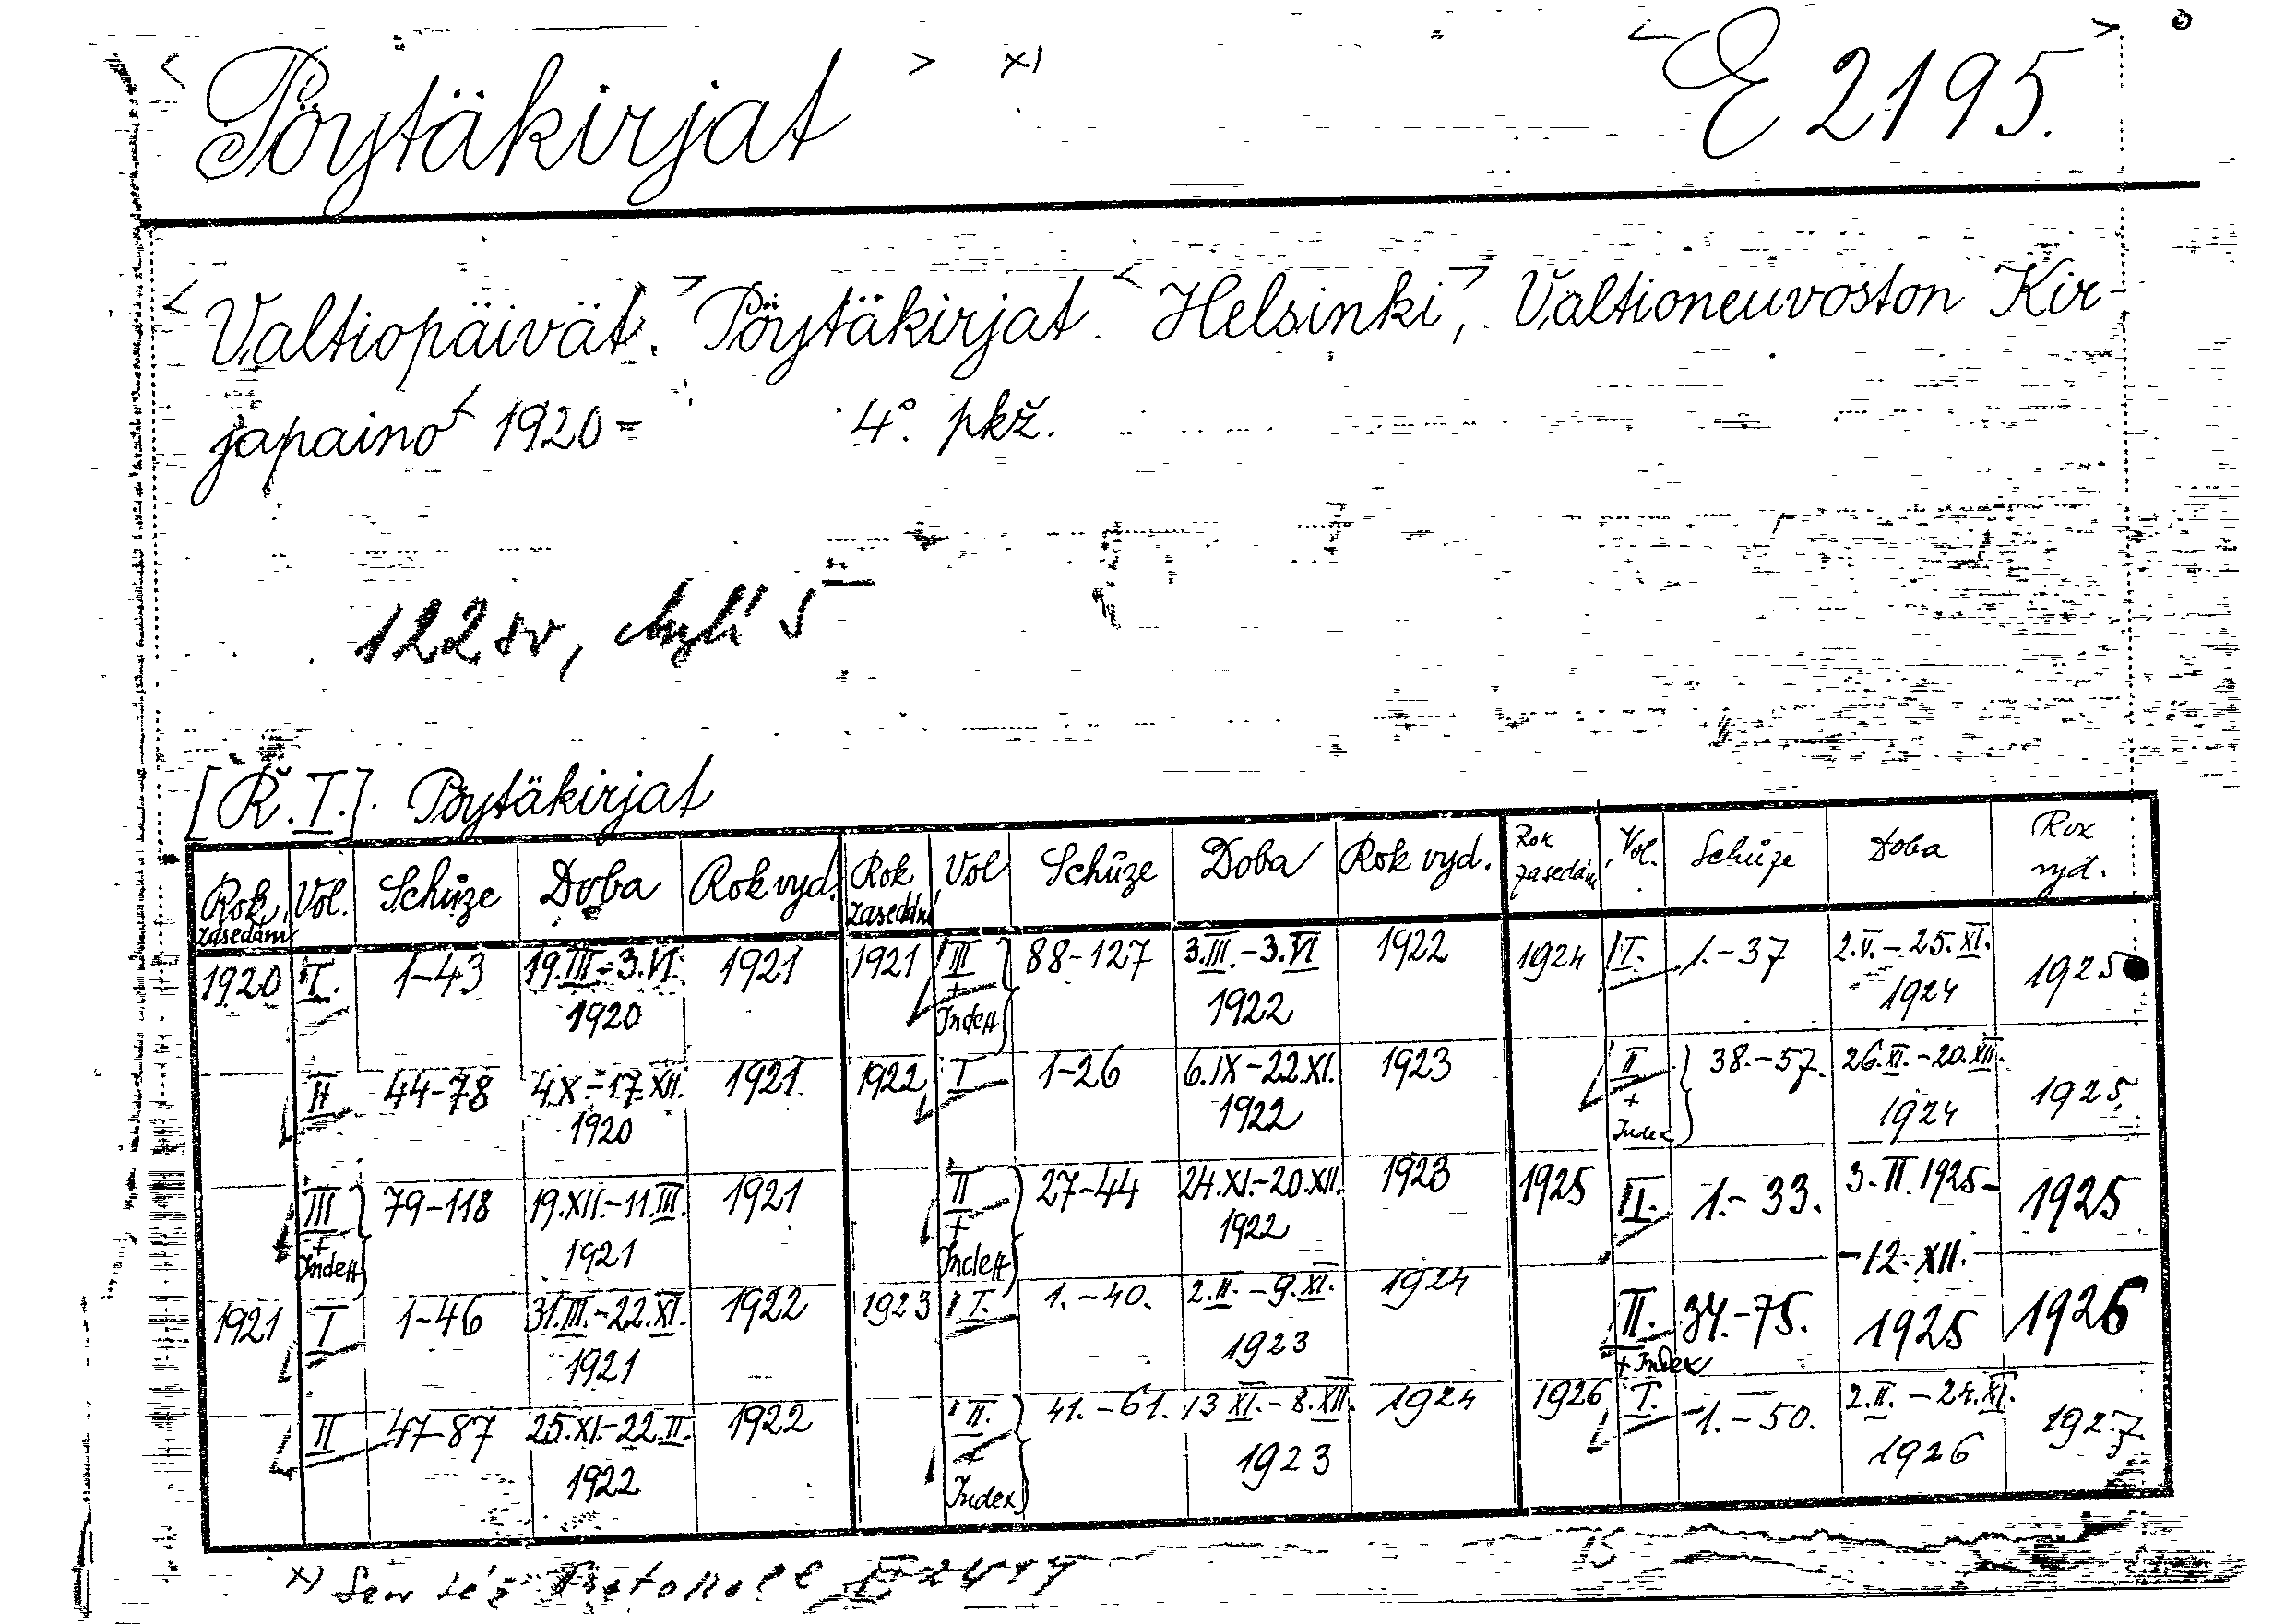 Pöytäkirjat x) E 2195.
Valtiopäivät. Pöytäkirjat. Helsinki, Valtioneuvoston Kir-
japaino 1920- 4°. pkž.
122 sv, chybí 5
[Ř. I.]. Pöytäkirjat
Rok zasedání Vol. Schůze Doba Rok vyd. Rok zasedání Vol Schůze Doba Rok vyd. Rok zasedání Vol. Schůze Doba Rok vyd.
1920 I. 1-43 19.III.-3.VI. 1920 1921 1921 III + Index 88-127 3.III.-3.VI 1922 1922 1924 I. 1.-37 2.V.-25.XI. 1924 1925
II 44-78 4.X.-17.XII. 1920 1921 1922 I 1-26 6.IX-22.XI. 1922 1923 II + Index 38.-57. 26.XI.-20.XII. 1924 1925.
III + Index 79-118 19.XII.-11.III. 1921 1921 II + Index 27-44 24.XI.-20.XII. 1922 1923 1925 I. 1.-33. 3.II.1925- 1925
1921 I 1-46 31.III.-22.XI. 1921 1922 1923 I. 1.-40. 2.II.-9.XI. 1923 1924 II. + Index 34.-75. -12.XII. 1925 1926
II 47-87 25.XI.-22.II. 1922 1922 II. + Index 41.-61. 13 XI.-8.XII. 1923 1924 1926 I. 1.-50. 2.II.-24.XI. 1926 1927
x) Sem též Protokoll E 2419